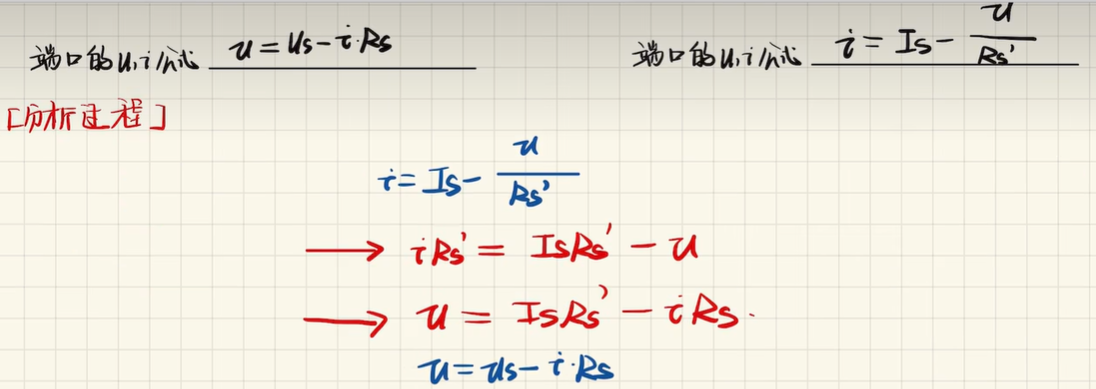 端口的u,i关系式 u = us - i·Rs
端口的u,i关系式 i = Is - u/Rs'
[分析过程]
i = Is - u/Rs'
→ iRs' = IsRs' - u
→ u = IsRs' - iRs.
u = us - i·Rs